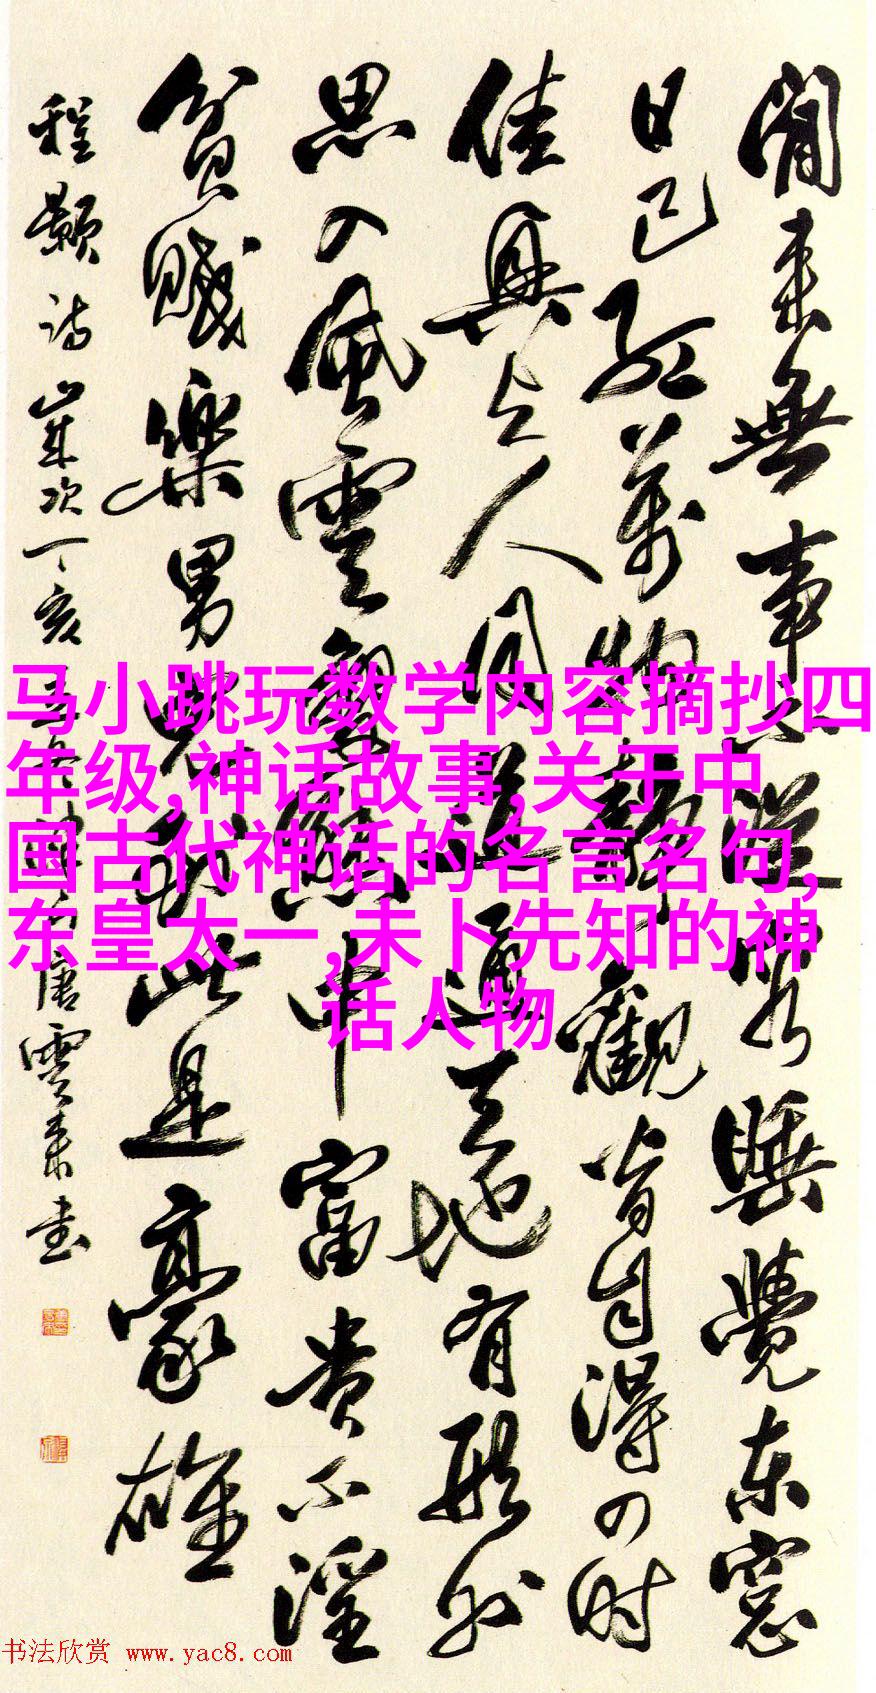 閒来無事不從容睡覺东窓
日已红萬物靜觀皆自得四时
佳興与人同道通天地有形外
思入風雲變態中富贵不淫
貧賤樂男兒到此是豪雄
程颢诗歲次丁亥唐雲来书
马小跳玩数学内容摘抄四
年级,神话故事,关于中
国古代神话的名言名句,
东皇太一,未卜先知的神
话人物
书法欣赏 www.yac8.com